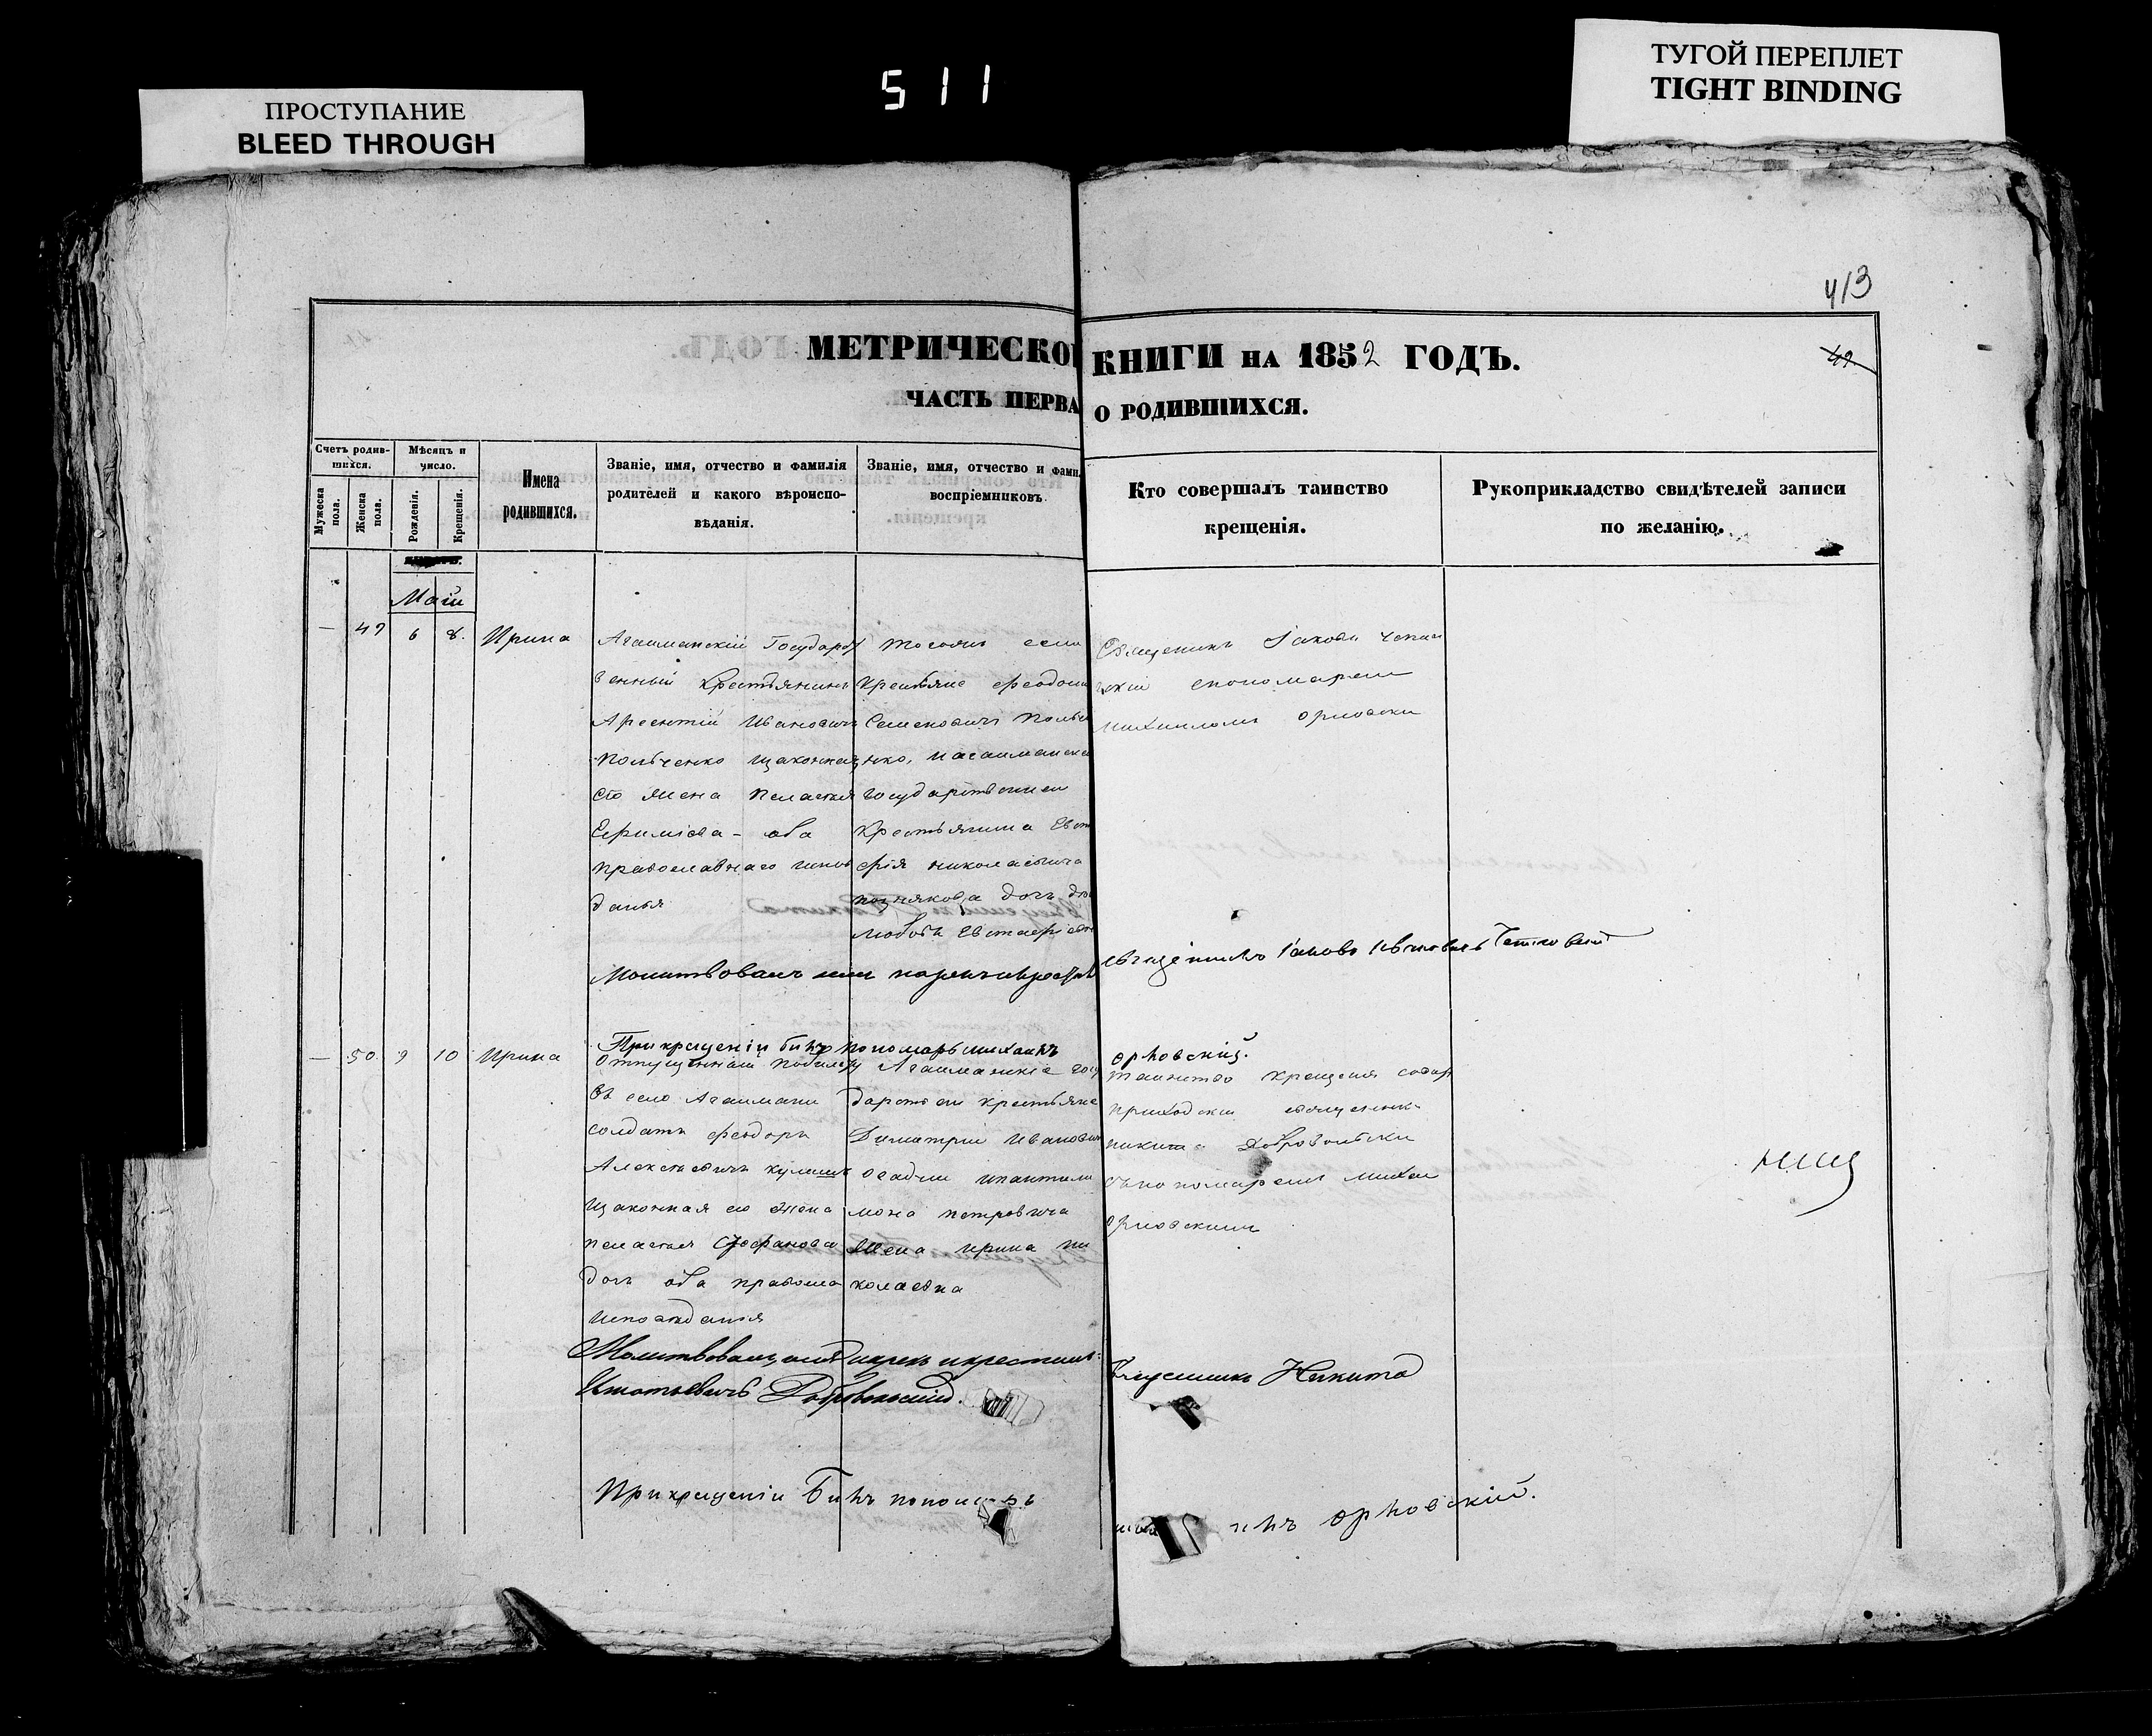 ПРОСТУПАНИЕ
BLEED THROUGH
511
ТУГОЙ ПЕРЕПЛЕТ
TIGHT BINDING
413
МЕТРИЧЕСКО КНИГИ НА 1852 ГОДЪ.
42
ЧАСТЬ ПЕРВА О РОДИВШИХСЯ.
Счетъ родив-
шихся.
Мужеска пола.
Женска пола.
Мѣсяцъ и
число.
Рожденія.
Крещенія.
Имена
родившихся.
Званіе, имя, отчество и фамилія
родителей и какого вѣроиспо-
вѣданія.
Званіе, имя, отчество и фами
воспріемниковъ.
Кто совершалъ таинство
крещенія.
Рукоприкладство свидѣтелей записи
по желанію.
Маій
— 49 6 8. Ирина
Агайманскій Государст
венный Крестьянинъ
Арсентій Ивановичъ
Польченко
его жена Пелагия
Ефимієва - оба
православнаго испов
данья
тогожъ села
крестьяне Феодоси
Семеновичъ Польч
нко, и агайманска
государственнои
Крестьянина Евст
фія николаевича
познякова дочь
Любовь Евстафіев
Священикъ Іаковъ
спономарем
михаиломъ орловски
Молитвовалъ имя нарекъ икрестил
священникъ Іаковъ
При крещеніи билъ пономарь михаилъ
орловский.
— 50 9 10 Ирина
Отпущенный
въ село Агаймани
солдатъ Феодоръ
Алексѣевичъ
изаконная его жена
пелагия Стефанова
дочь оба православ
исповѣдания
Агайманские госу
дарствен крестьяне
Димитрий Иванович
осадчи ипантили
мона петровича
Жена ирина ни
колаевна
таинство крещения совер
приходски священик
никита Доброволски
съпономаремъ михаи
орловскимъ
Молитвовалъ имя нарекъ икрестилъ
Священникъ Никита
Игнатьевичъ Добровольский.
При крещеніи билъ пономарь
илъ орловскій.